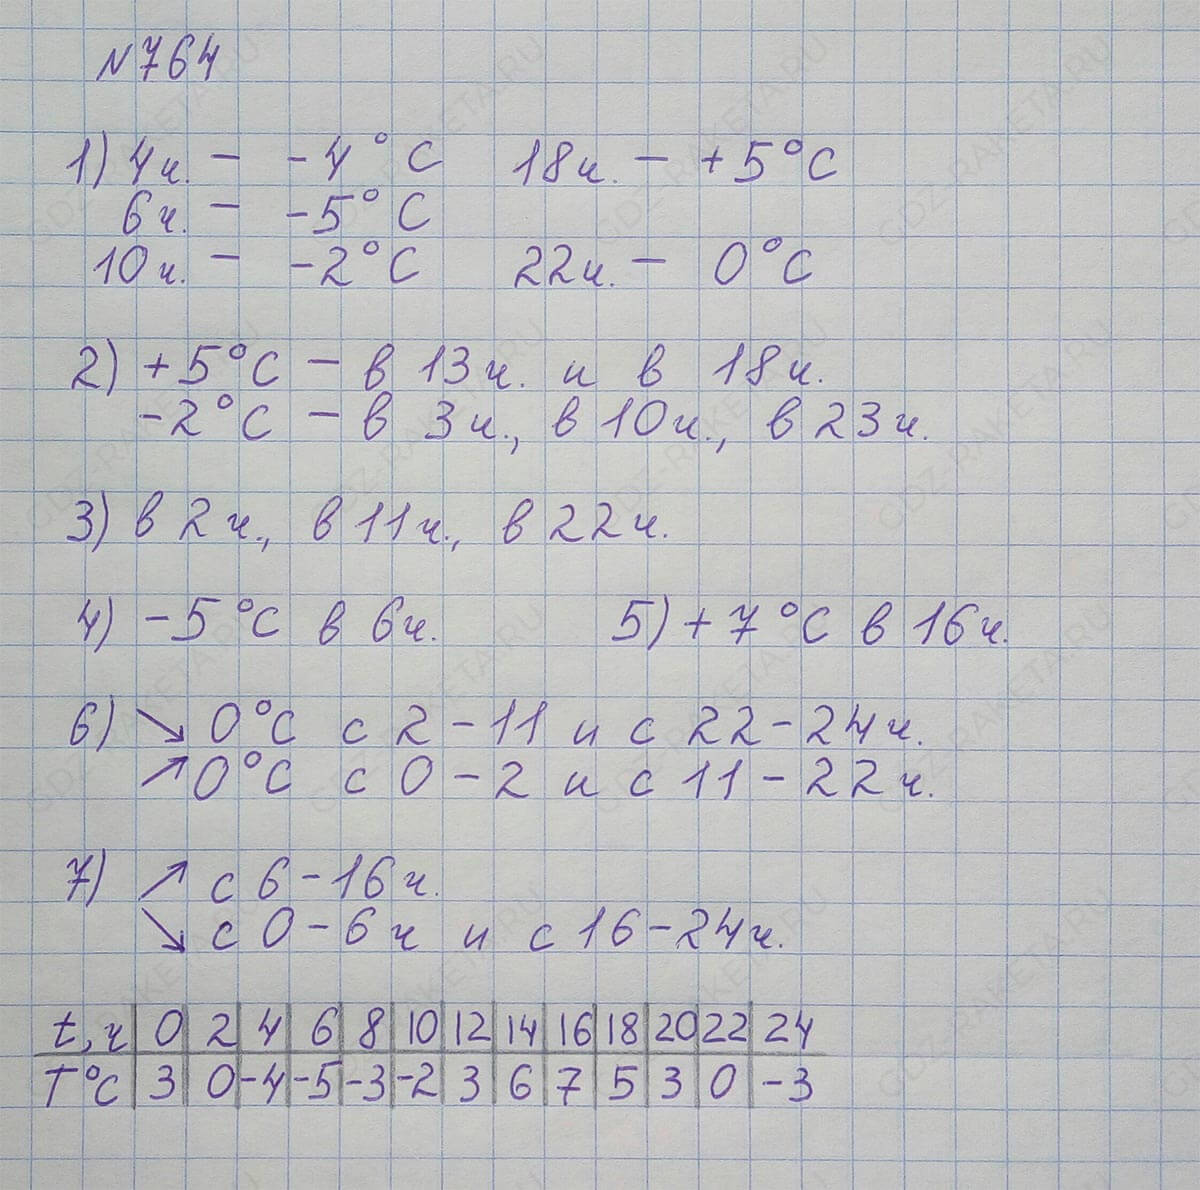 N764
1) 4ч. - -4°C 18ч. - +5°C
6ч. - -5°C
10ч. - -2°C 22ч. - 0°C
2) +5°C - в 13ч. и в 18ч.
-2°C - в 3ч., в 10ч., в 23ч.
3) в 2ч., в 11ч., в 22ч.
4) -5°C в 6ч. 5) +7°C в 16ч.
6) ↘ 0°C с 2-11 и с 22-24ч.
↗ 0°C с 0-2 и с 11-22ч.
7) ↗ с 6-16ч.
↘ с 0-6ч и с 16-24ч.
t,ч 0 2 4 6 8 10 12 14 16 18 20 22 24
T°C 3 0 -4 -5 -3 -2 3 6 7 5 3 0 -3